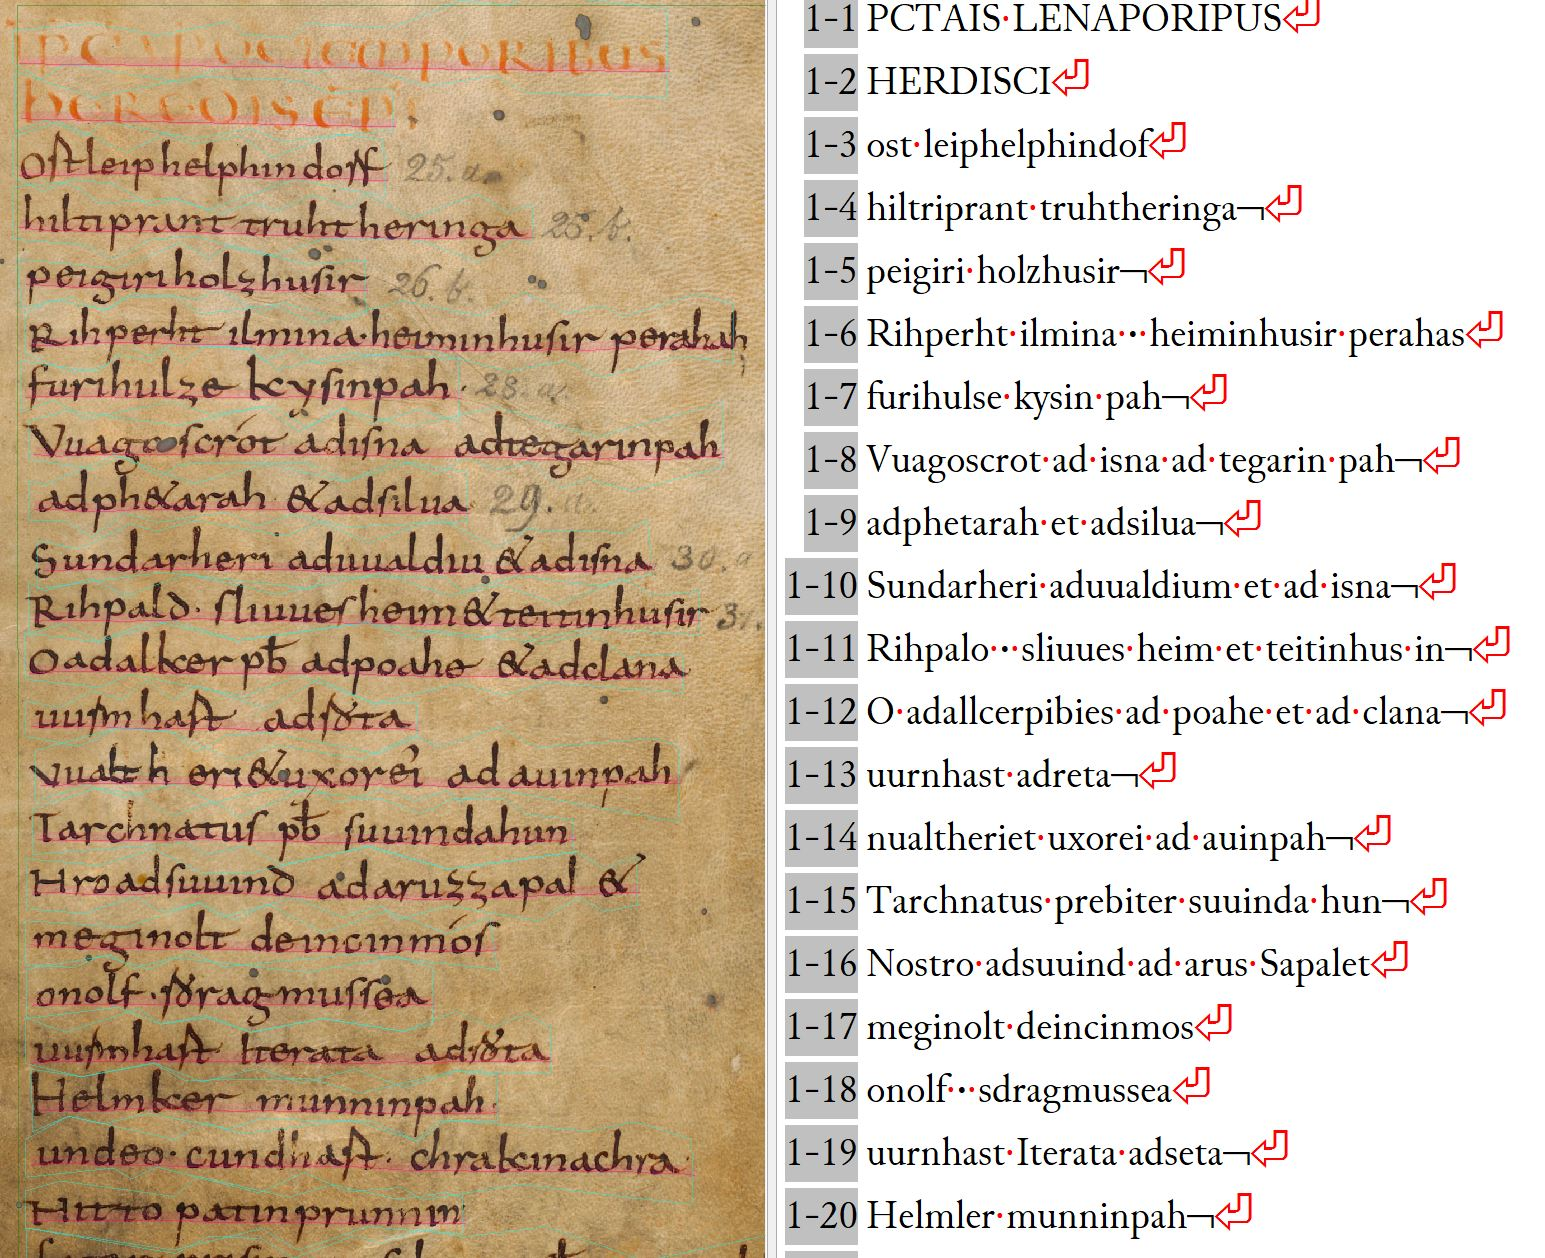 TEMPORIBUS
EPI
Oſtleiphelphindorf 25. a.
hiltiprant truhtheringa 25. b.
peigiri holzhuſir 26. b.
Rihperht ilmina · heiminhuſir perahah
furihulze kyſinpah · 28. a.
Vuagoſcrót adiſna adtegarinpah
adph&arah &adſilua 29. a.
Sundarheri aduualdiu &adiſna 30. a
Rihpald · ſliuueſheim&teitinhuſir 31.
Oadalker pƀ adpoahe &adclana
adſ
Vualth eri&uxorei ad auinpah
Tarchnatuſ pƀ ſuuindahun
Hroadſuuind adaruzzapal &
meginolt deincinmóſ
onolf ·
Iterata
Helmker munninpah
undeo · cundhaft · chrakcinachra
Hitto patinprunnin
1-1 PCTAIS·LENAPORIPUS
1-2 HERDISCI
1-3 ost·leiphelphindof
1-4 hiltriprant·truhtheringa¬
1-5 peigiri·holzhusir¬
1-6 Rihperht·ilmina···heiminhusir·perahas
1-7 furihulse·kysin·pah¬
1-8 Vuagoscrot·ad·isna·ad·tegarin·pah¬
1-9 adphetarah·et·adsilua¬
1-10 Sundarheri·aduualdium·et·ad·isna¬
1-11 Rihpalo···sliuues·heim·et·teitinhus·in¬
1-12 O·adallcerpibies·ad·poahe·et·ad·clana¬
1-13 uurnhast·adreta¬
1-14 nualtheriet·uxorei·ad·auinpah¬
1-15 Tarchnatus·prebiter·suuinda·hun¬
1-16 Nostro·adsuuind·ad·arus·Sapalet
1-17 meginolt·deincinmos
1-18 onolf···sdragmussea
1-19 uurnhast·Iterata·adseta¬
1-20 Helmler·munninpah¬